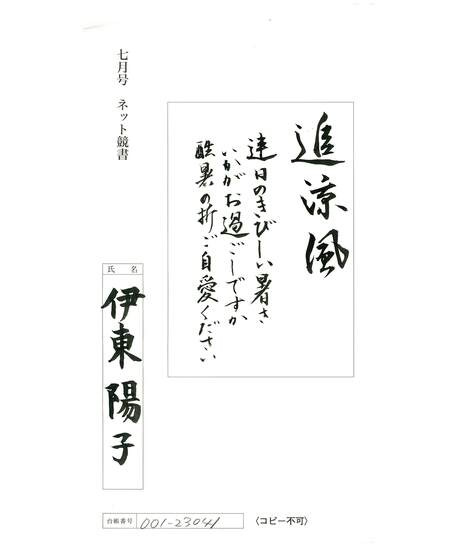 七月号 ネット競書
追涼風
連日のきびしい暑さ
いかがお過ごしですか
酷暑の折ご自愛ください
氏名
伊東陽子
台帳番号 001-23041
(コピー不可)